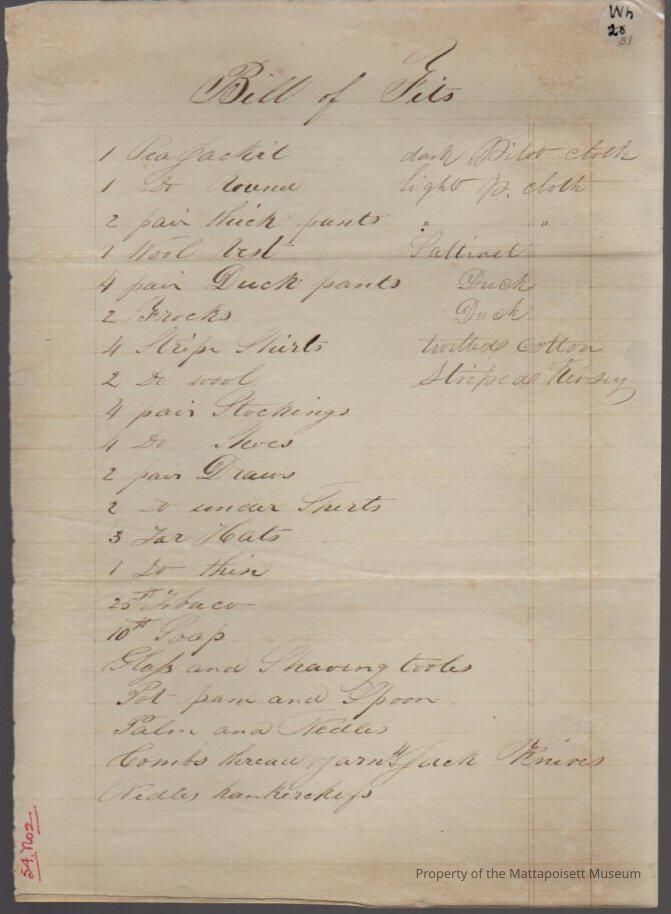 Wh
20
51
Bill of Fits
1 Pea Jackit dark Pilot cloth
1 Do Round light p. cloth
2 pair thick pants " "
1 Wool Vest Sattinet
4 pair Duck pants Duck
2 Frocks Duck
4 Stripe Shirts twilled Cotton
2 Do wool Striped Kersey
4 pair Stockings
4 Do Shoes
2 pair Draws
2 Do under Shirts
3 Tar Hats
1 Do thin
25 lb Tobaco
10 lb Soap
Glass and Shaving tooles
Pot pan and Spoon
Palm and Nedles
Combs thread yarn & Jack Knives
Nedles hankerchifs
54. No2
Property of the Mattapoisett Museum